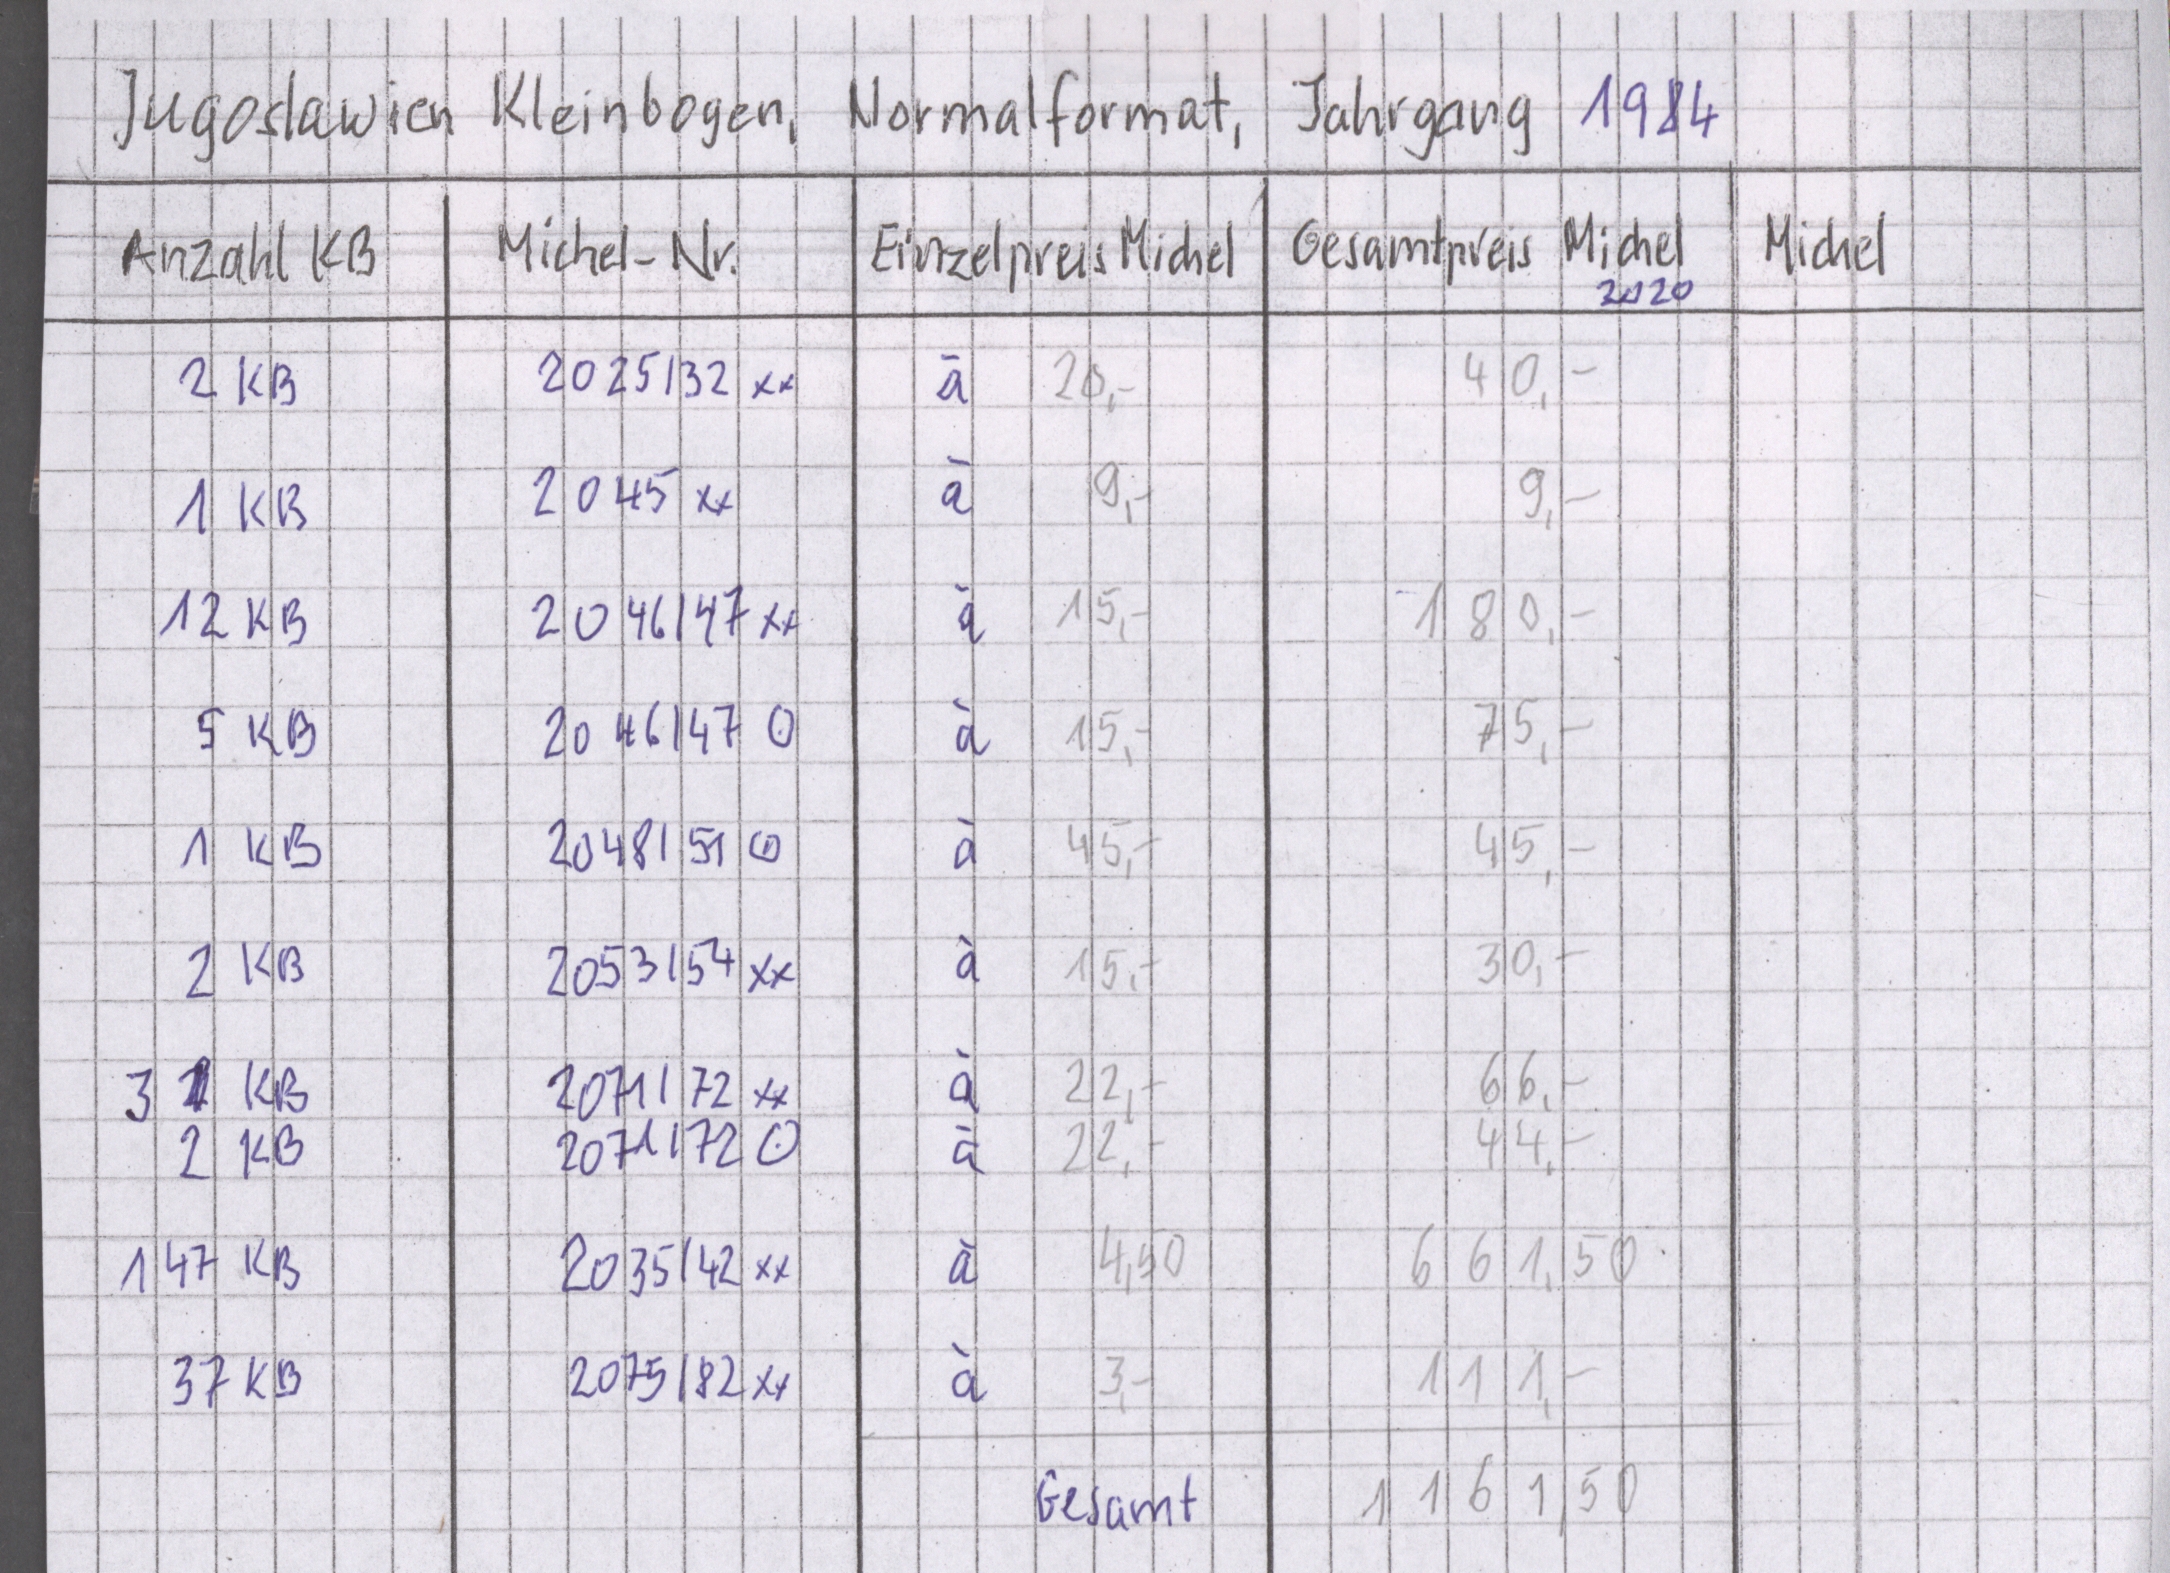 Jugoslawien Kleinbogen, Normalformat, Jahrgang 1984
Anzahl KB Michel-Nr. Einzelpreis Michel Gesamtpreis Michel 2020 Michel
2 KB 2025/32 xx à 20,- 40,-
1 KB 2045 xx à 9,- 9,-
12 KB 2046/47 xx à 15,- 180,-
5 KB 2046/47 ⊙ à 15,- 75,-
1 KB 2048/51 ⊙ à 45,- 45,-
2 KB 2053/54 xx à 15,- 30,-
3 KB 2071/72 xx à 22,- 66,-
2 KB 2071/72 ⊙ à 22,- 44,-
147 KB 2035/42 xx à 4,50 661,50
37 KB 2075/82 xx à 3,- 111,-
Gesamt 1161,50